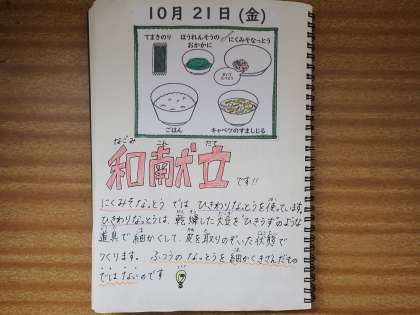 10月21日(金)
てまきのり
ほうれんそうの
おかかに
にくみそなっとう
ごはん
キャベツのすましじる
なごみ こん だて
和献立です!!
にくみそなっとうでは ひきわりなっとうを使っています。
ひきわりなっとうは、乾燥した大豆を"ひきうす"のような
道具で細かくして、皮を取りのぞいた状態で
つくります。ふつうのなっとうを細かくきざんだもの
ではないのです